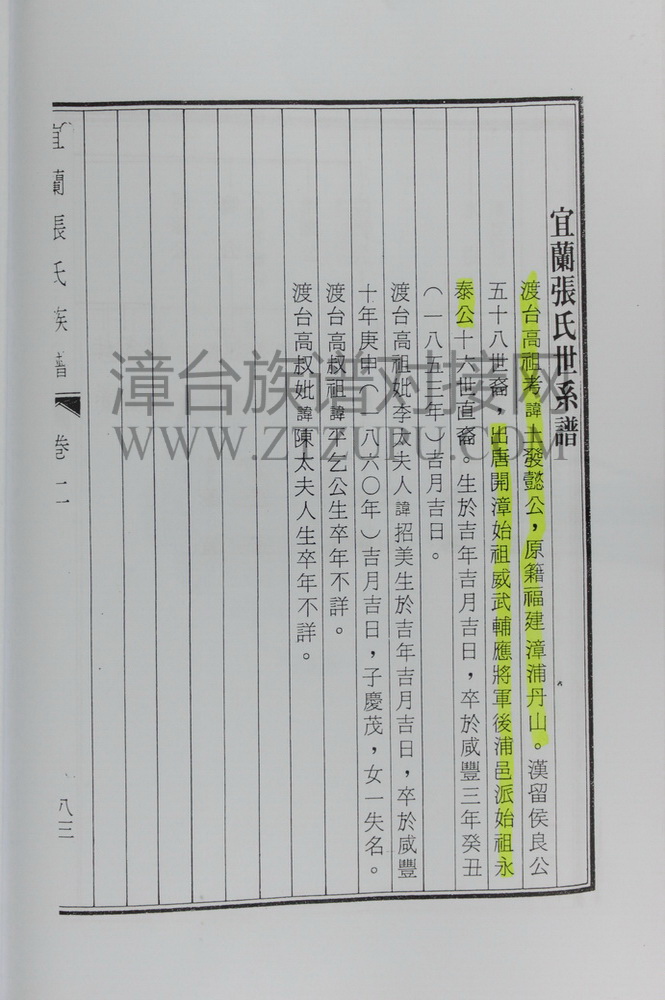 宜蘭張氏世系譜
渡台高祖考諱士發懿公，原籍福建漳浦丹山。漢留侯良公
五十八世裔，出唐開漳始祖威武輔應將軍後浦邑派始祖永
泰公十六世直裔。生於吉年吉月吉日，卒於咸豐三年癸丑
（一八五三年）吉月吉日。
渡台高祖妣李太夫人諱招美生於吉年吉月吉日，卒於咸豐
十年庚申（一八六〇年）吉月吉日，子慶茂，女一失名。
渡台高叔祖諱平乞公生卒年不詳。
渡台高叔妣諱陳太夫人生卒年不詳。
宜蘭張氏族譜
卷二
八三
漳台族谱对接网
WWW.ZTZUPU.COM